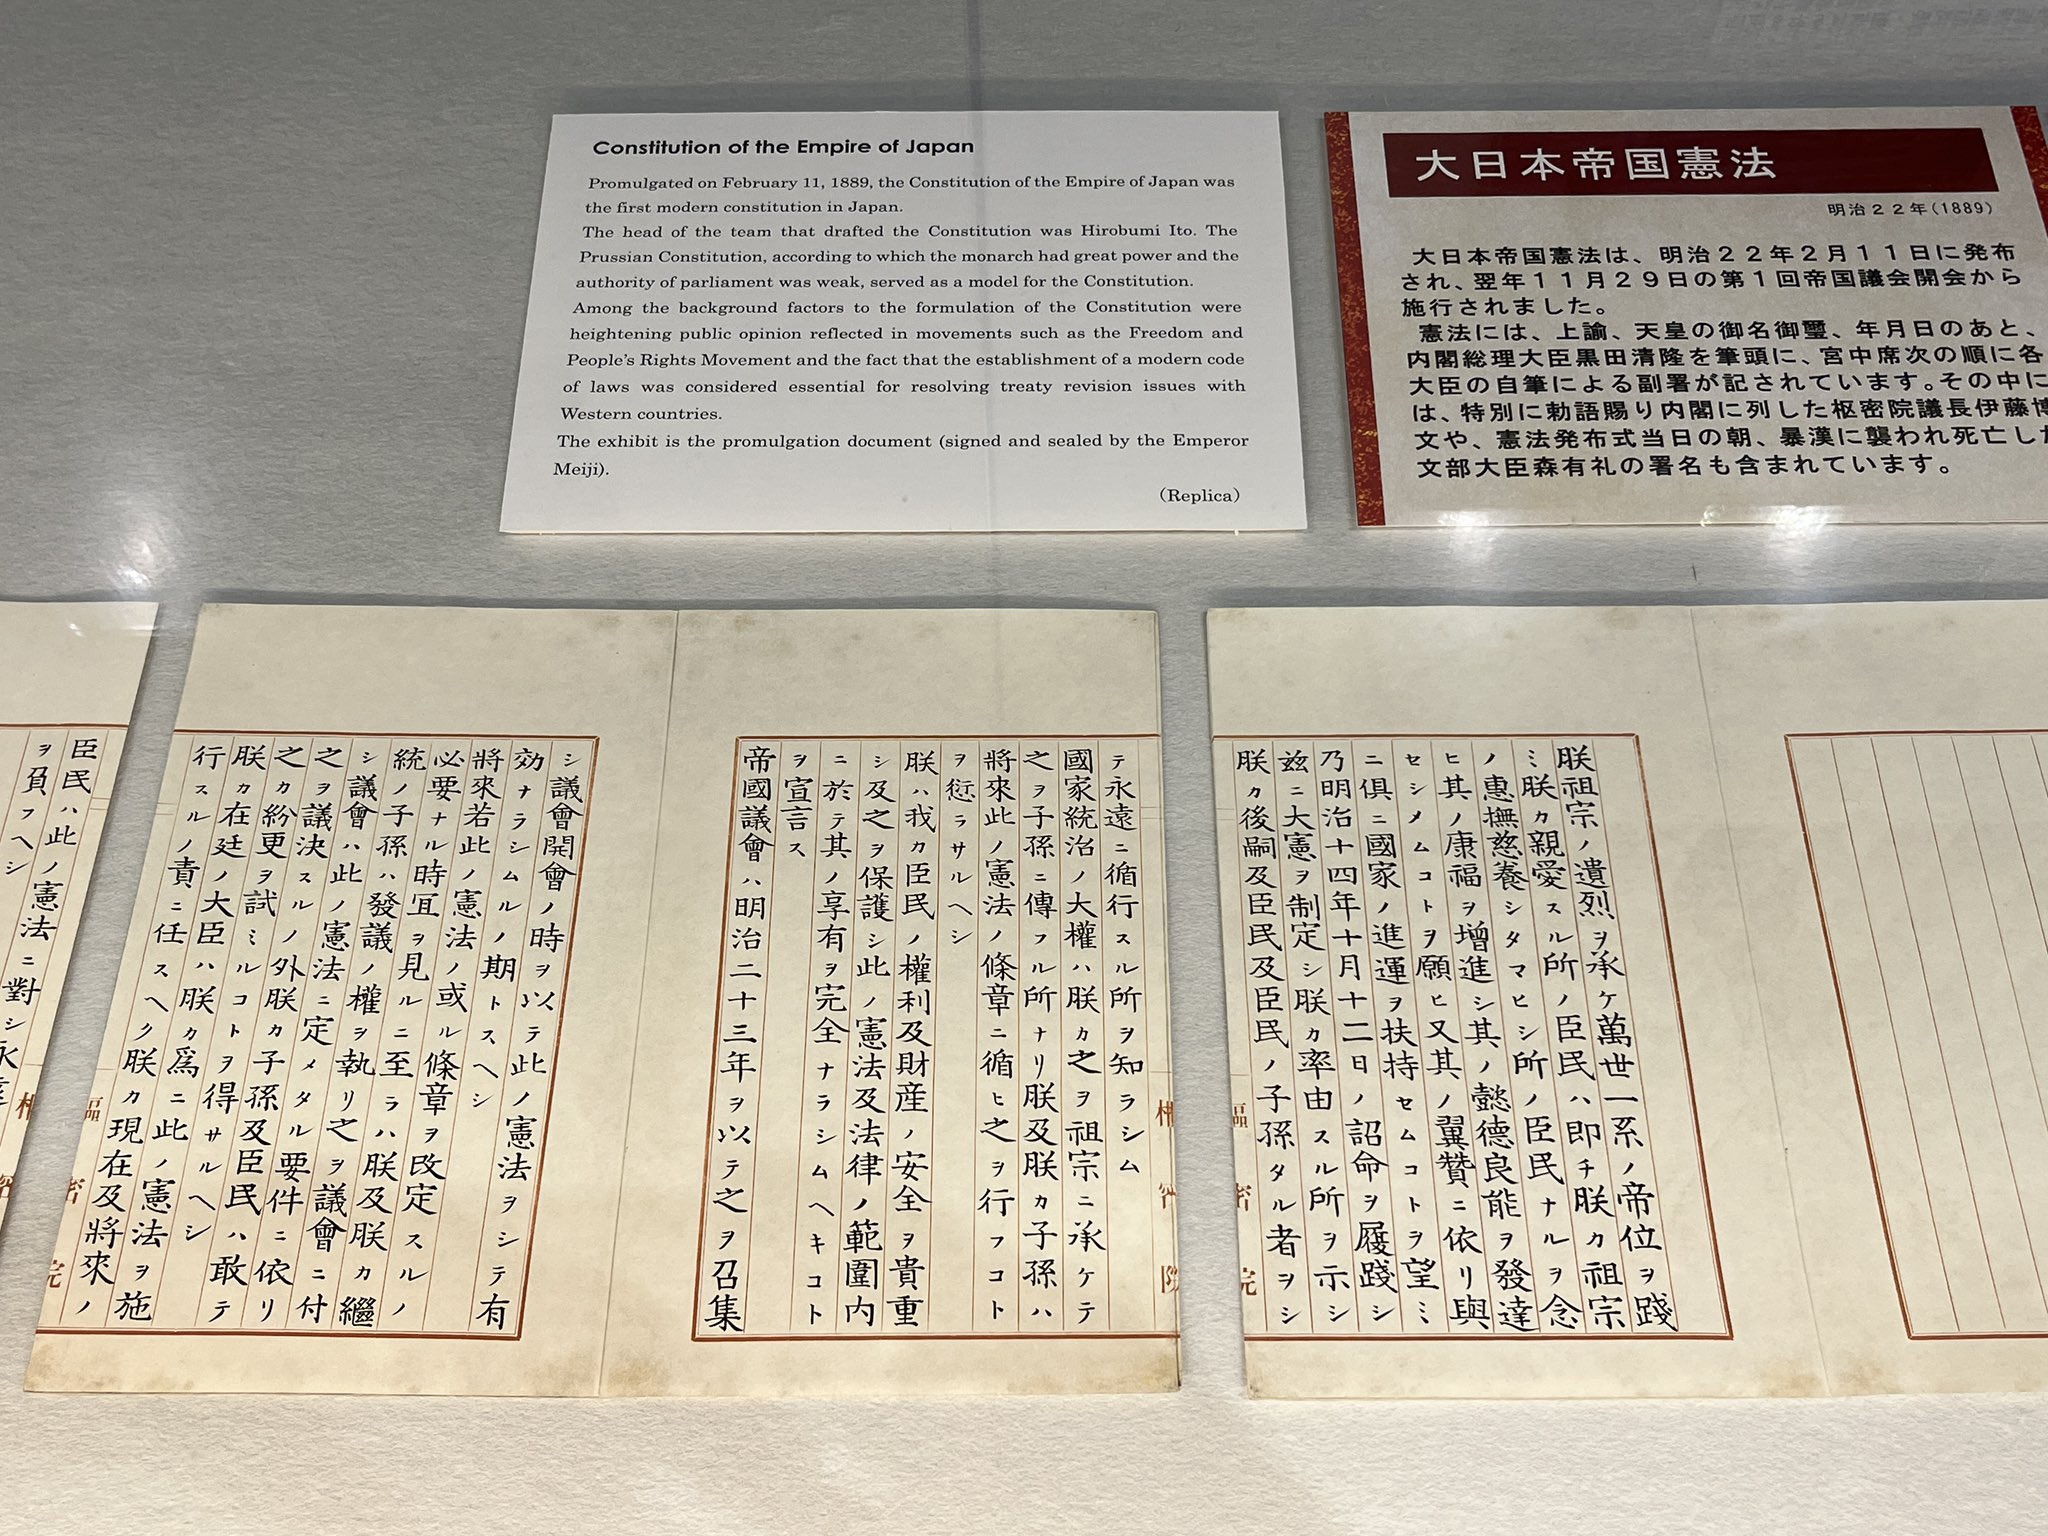 Constitution of the Empire of Japan
Promulgated on February 11, 1889, the Constitution of the Empire of Japan was
the first modern constitution in Japan.
The head of the team that drafted the Constitution was Hirobumi Ito. The
Prussian Constitution, according to which the monarch had great power and the
authority of parliament was weak, served as a model for the Constitution.
Among the background factors to the formulation of the Constitution were
heightening public opinion reflected in movements such as the Freedom and
People's Rights Movement and the fact that the establishment of a modern code
of laws was considered essential for resolving treaty revision issues with
Western countries.
The exhibit is the promulgation document (signed and sealed by the Emperor
Meiji).
(Replica)
大日本帝国憲法
明治２２年(1889)
大日本帝国憲法は、明治２２年２月１１日に発布
され、翌年１１月２９日の第１回帝国議会開会から
施行されました。
憲法には、上諭、天皇の御名御璽、年月日のあと、
内閣総理大臣黒田清隆を筆頭に、宮中席次の順に各
大臣の自筆による副署が記されています。その中に
は、特別に勅語賜り内閣に列した枢密院議長伊藤博
文や、憲法発布式当日の朝、暴漢に襲われ死亡した
文部大臣森有礼の署名も含まれています。
朕祖宗ノ遺烈ヲ承ケ萬世一系ノ帝位ヲ踐
ミ朕カ親愛スル所ノ臣民ハ即チ朕カ祖宗
ノ惠撫慈養シタマヒシ所ノ臣民ナルヲ念
ヒ其ノ康福ヲ增進シ其ノ懿德良能ヲ發達
セシメムコトヲ願ヒ又其ノ翼贊ニ依リ與
ニ俱ニ國家ノ進運ヲ扶持セムコトヲ望ミ
乃明治十四年十月十二日ノ詔命ヲ履踐シ
茲ニ大憲ヲ制定シ朕カ率由スル所ヲ示シ
朕カ後嗣及臣民及臣民ノ子孫タル者ヲシ
テ永遠ニ循行スル所ヲ知ラシム
國家統治ノ大權ハ朕カ之ヲ祖宗ニ承ケテ
之ヲ子孫ニ傳フル所ナリ朕及朕カ子孫ハ
將來此ノ憲法ノ條章ニ循ヒ之ヲ行フコト
ヲ愆ラサルヘシ
朕ハ我カ臣民ノ權利及財產ノ安全ヲ貴重
シ及之ヲ保護シ此ノ憲法及法律ノ範圍內
ニ於テ其ノ享有ヲ完全ナラシムヘキコト
ヲ宣言ス
帝國議會ハ明治二十三年ヲ以テ之ヲ召集
シ議會開會ノ時ヲ以テ此ノ憲法ヲシテ有
効ナラシムルノ期トスヘシ
將來若此ノ憲法ノ或ル條章ヲ改定スルノ
必要ナル時宜ヲ見ルニ至ラハ朕及朕カ繼
統ノ子孫ハ發議ノ權ヲ執リ之ヲ議會ニ付
シ議會ハ此ノ憲法ニ定メタル要件ニ依リ
之ヲ議決スルノ外朕カ子孫及臣民ハ敢テ
之カ紛更ヲ試ミルコトヲ得サルヘシ
朕カ在廷ノ大臣ハ朕カ爲ニ此ノ憲法ヲ施
行スルノ責ニ任スヘク朕カ現在及將來ノ
臣民ハ此ノ憲法ニ對シ永
ヲ負フヘシ